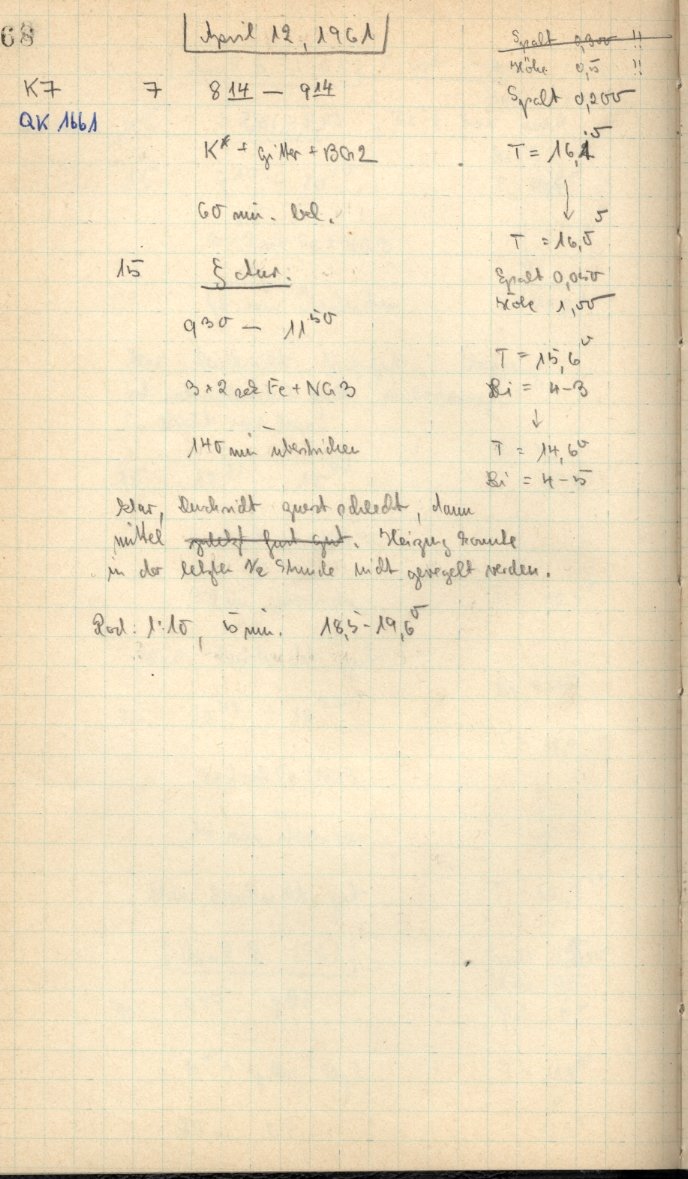 68
April 12, 1961
Spalt 0,300 !!
Höhe 0,5 !!
K7 7 8 14 — 9 14
Spalt 0,200
QK 1661
K* + Gitter + BG2
T = 16,
60 min. bel.
T = 16,5
15 ξ Aur.
Spalt 0,
Höhe 1,00
9 30 — 11 50
T = 15,6
3 × 2 Fe + NG3
Bi = 4-3
140 min überstrichen
T = 14,6
Bi = 4-5
klar, Durchsicht zuerst schlecht, dann
mittel zuletzt fast gut. Heizung konnte
in der letzten 1/2 Stunde nicht geregelt werden.
Rod. 1:10, 5 min. 18,5-19,6